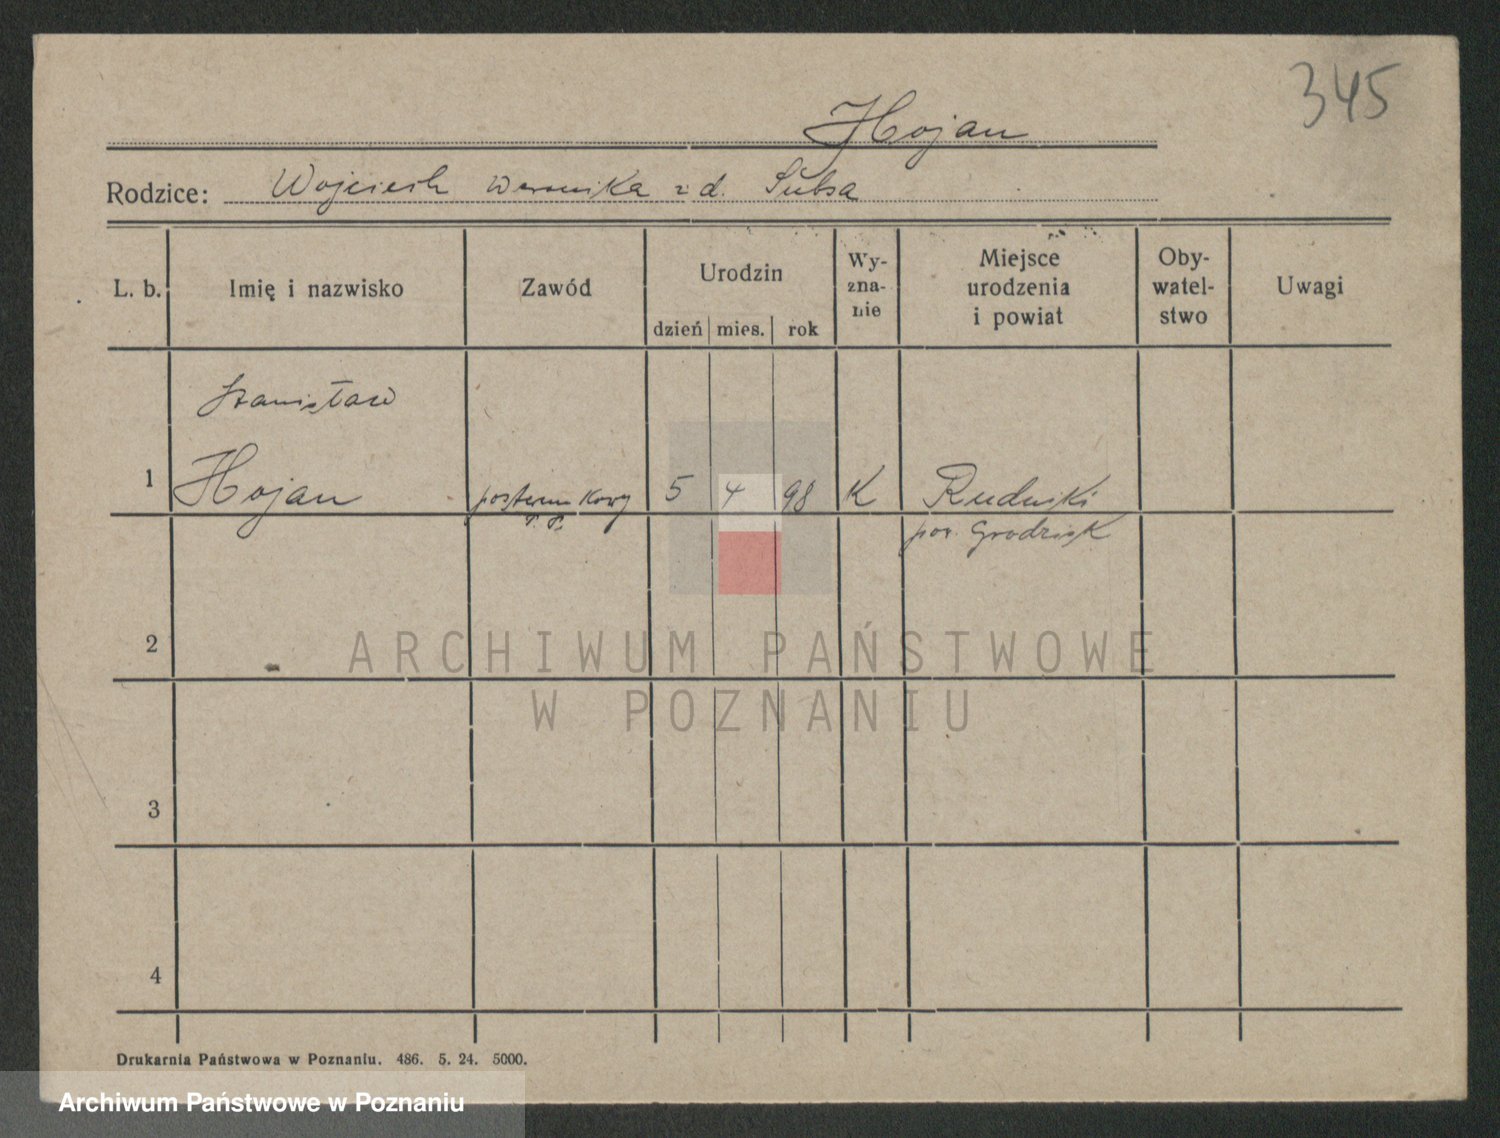 345
Hojan
Rodzice: Wojciech Weronika z d.
L. b. Imię i nazwisko Zawód Urodzin dzień mies. rok Wy-zna-nie Miejsce urodzenia i powiat Oby-watel-stwo Uwagi
Stanisław
1 Hojan posterunkowy 5 4 98 K Rudniki
P. P. pow. Grodzisk
2
ARCHIWUM PAŃSTWOWE
W POZNANIU
3
4
Drukarnia Państwowa w Poznaniu. 486. 5. 24. 5000.
Archiwum Państwowe w Poznaniu